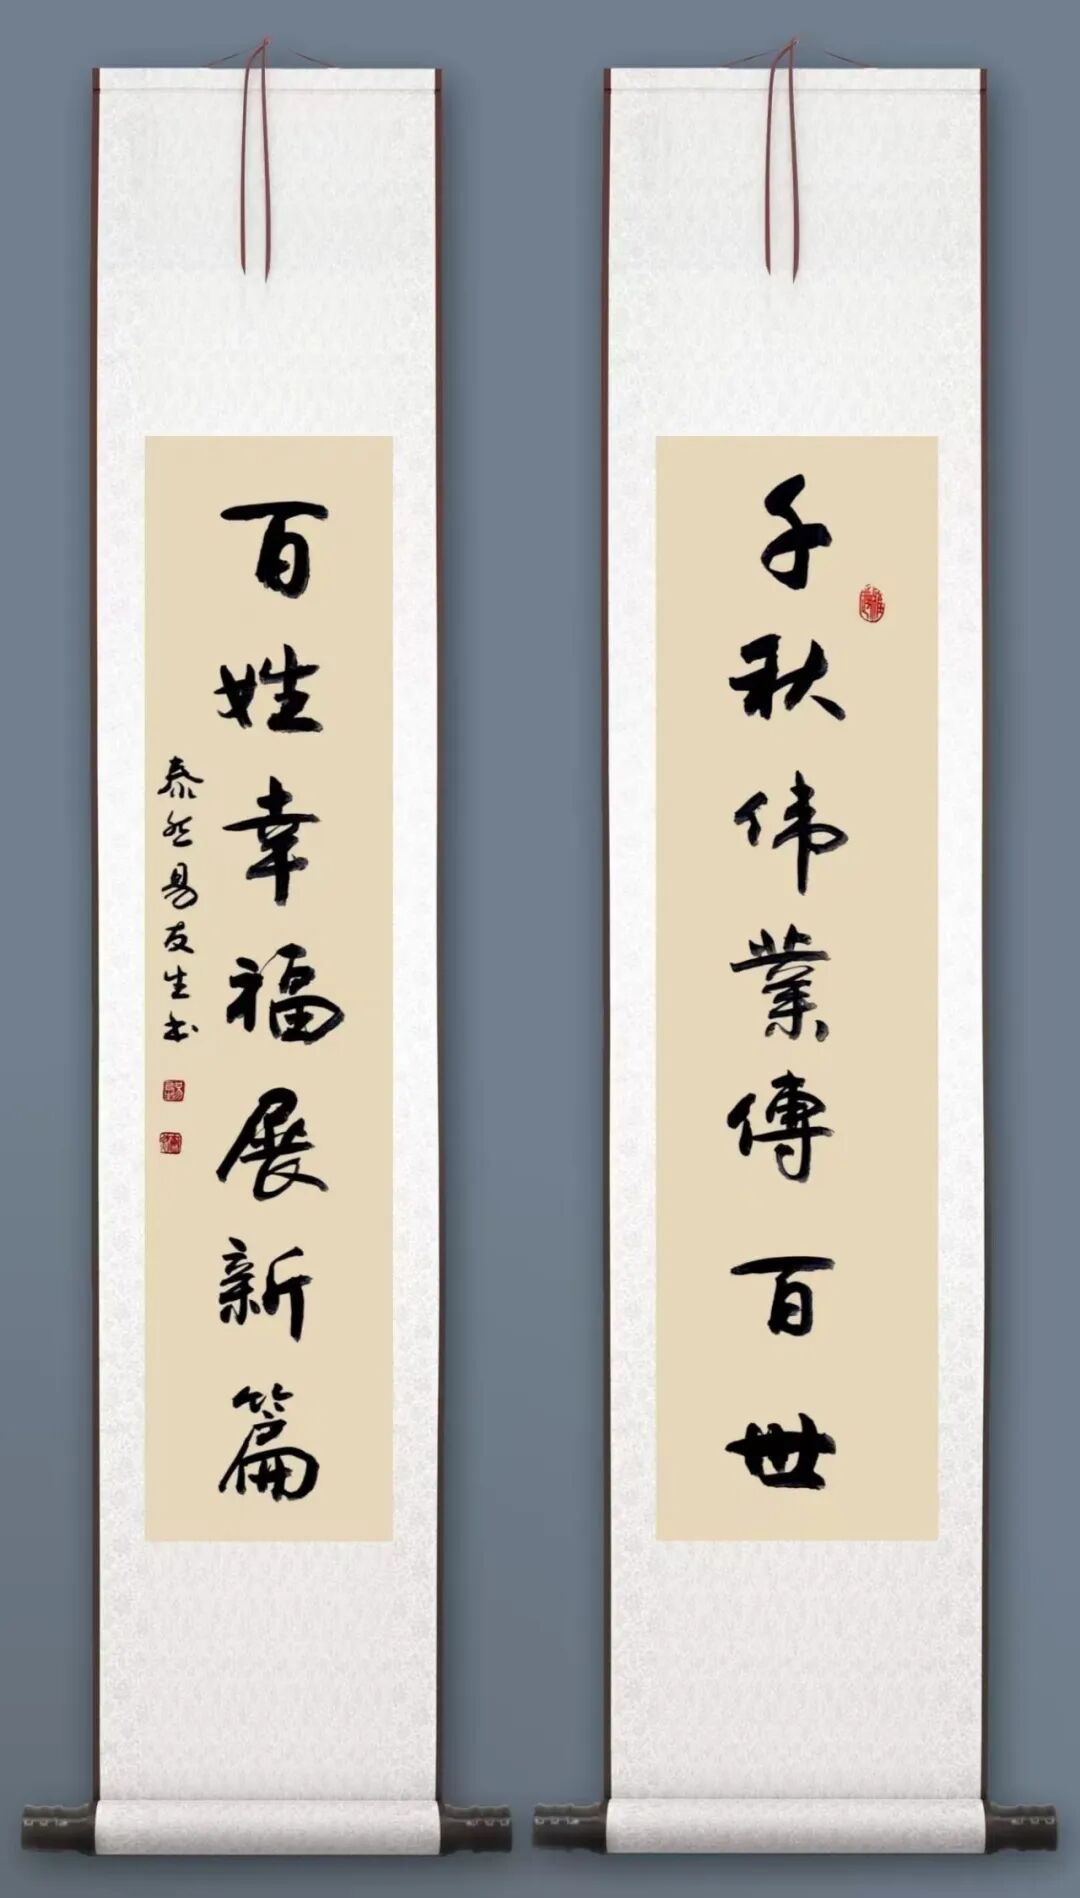 千秋伟業傳百世
百姓幸福展新篇
泰然易友生书